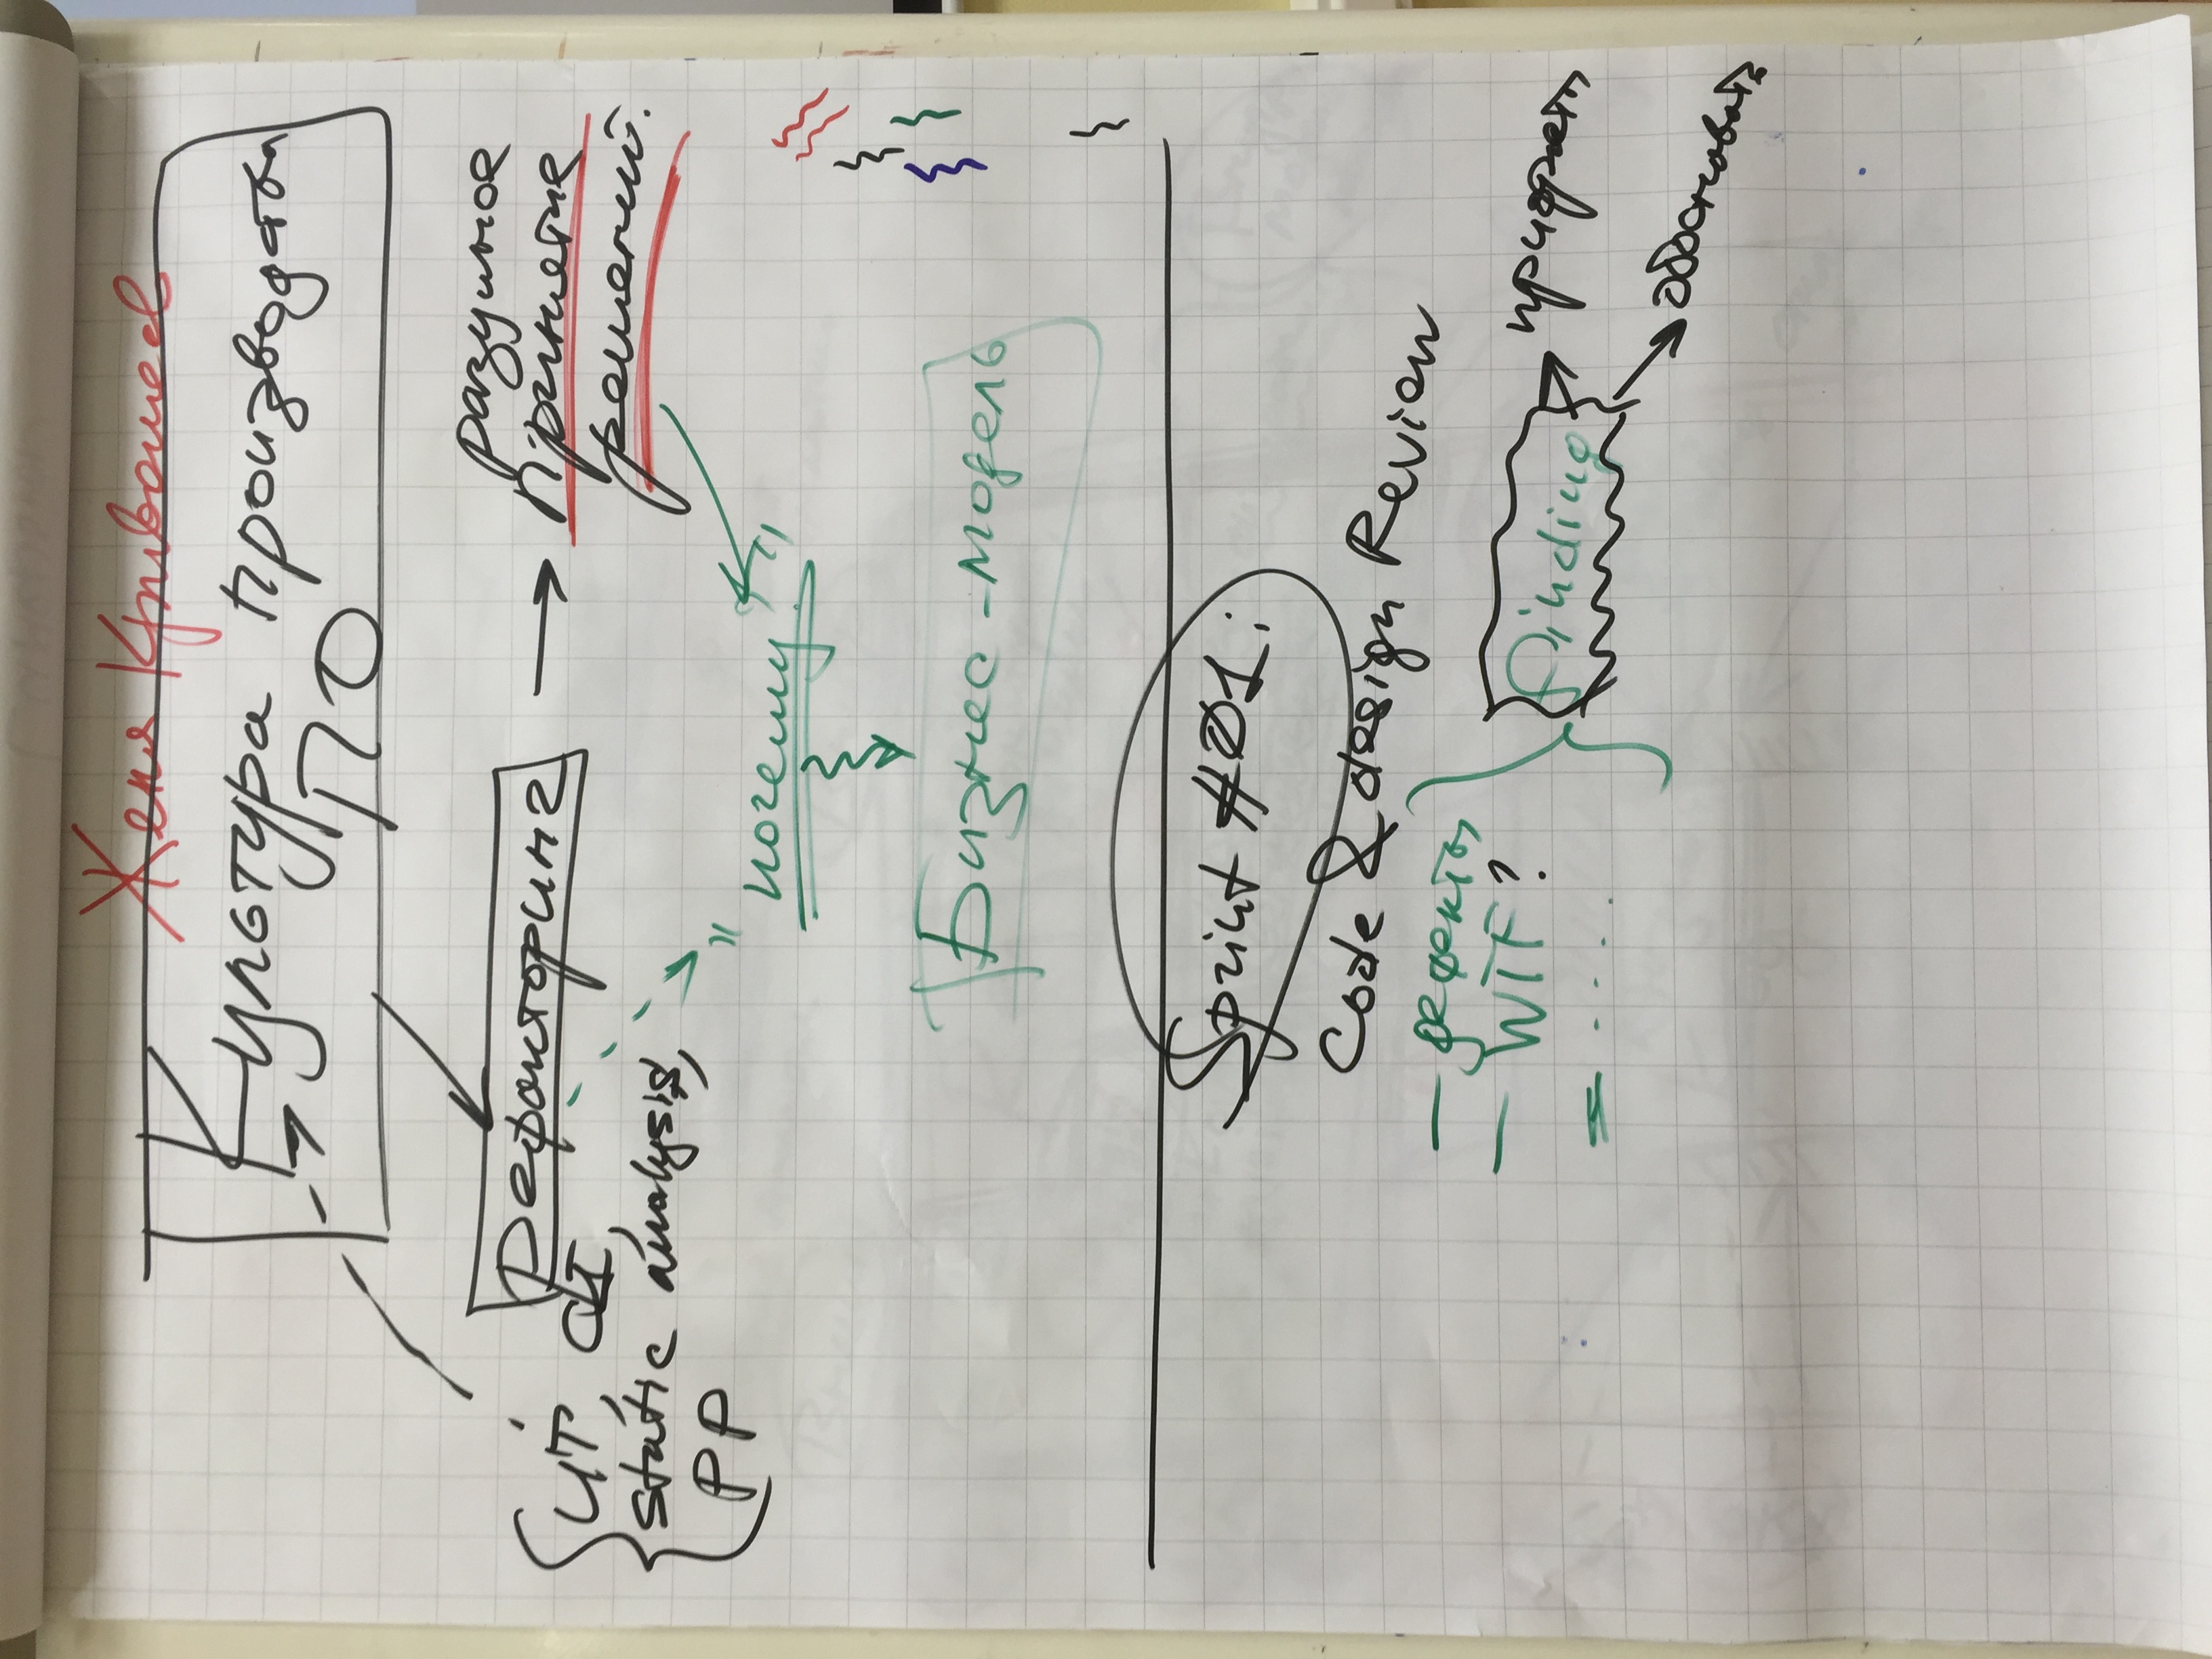 Женя Кривошеев
Культура производства
ПО
Рефакторинг
разумное
принятие
решений.
UT, CI,
static analysis,
PP
"почему?"
Бизнес-модель
Sprint #01:
Code & design Review
— дефекты
— WTF?
— ....
Finding
обосновать